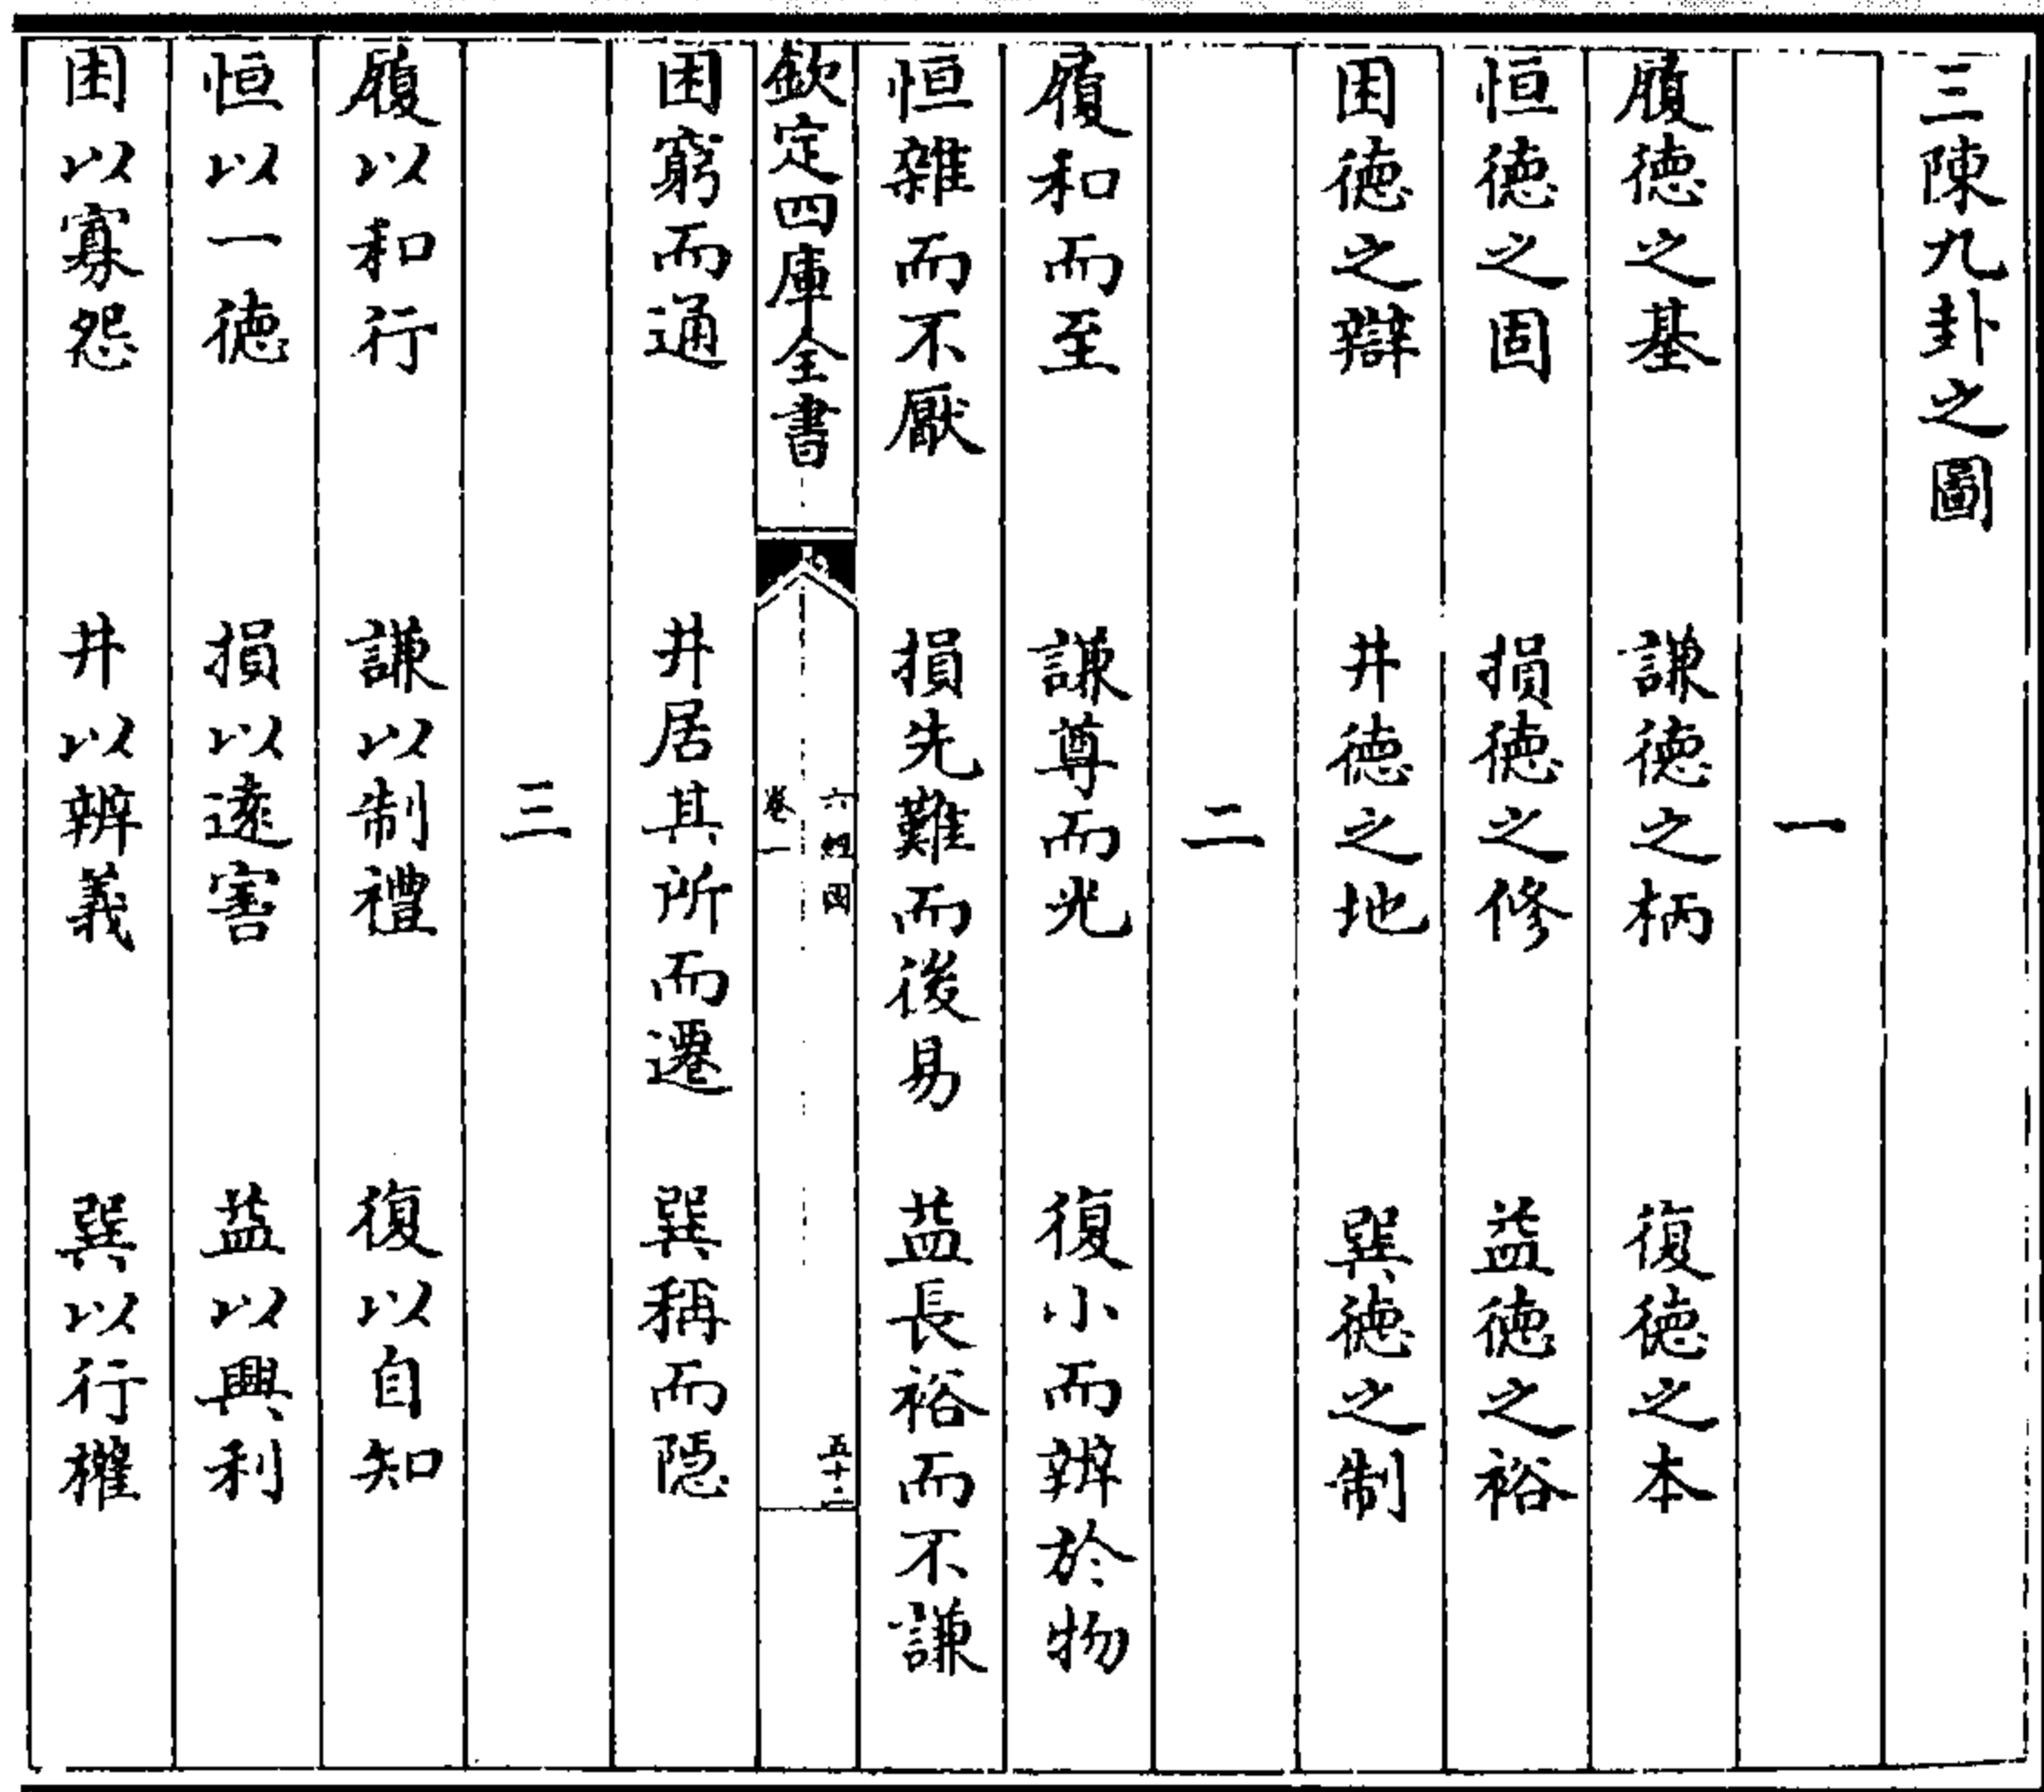 三陳九卦之圖
一
履徳之基 謙徳之柄 復徳之本
恒徳之固 損徳之修 益徳之裕
困徳之辯 井徳之地 巽徳之制
二
履和而至 謙尊而光 復小而辨於物
恒雜而不厭 損先難而後易 益長裕而不謙
欽定四庫全書 六經圖 卷一 五十二
困窮而通 井居其所而遷 巽稱而隱
三
履以和行 謙以制禮 復以自知
恒以一徳 損以遠害 益以興利
困以寡怨 井以辨義 巽以行權